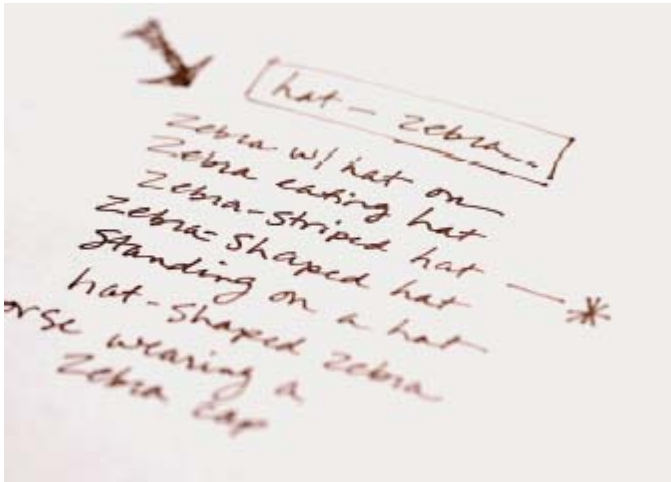 hat - zebra...
Zebra w/ hat on
Zebra eating hat
Zebra-striped hat — *
Zebra-shaped hat
Standing on a hat
hat-shaped zebra
orse wearing a
Zebra cap